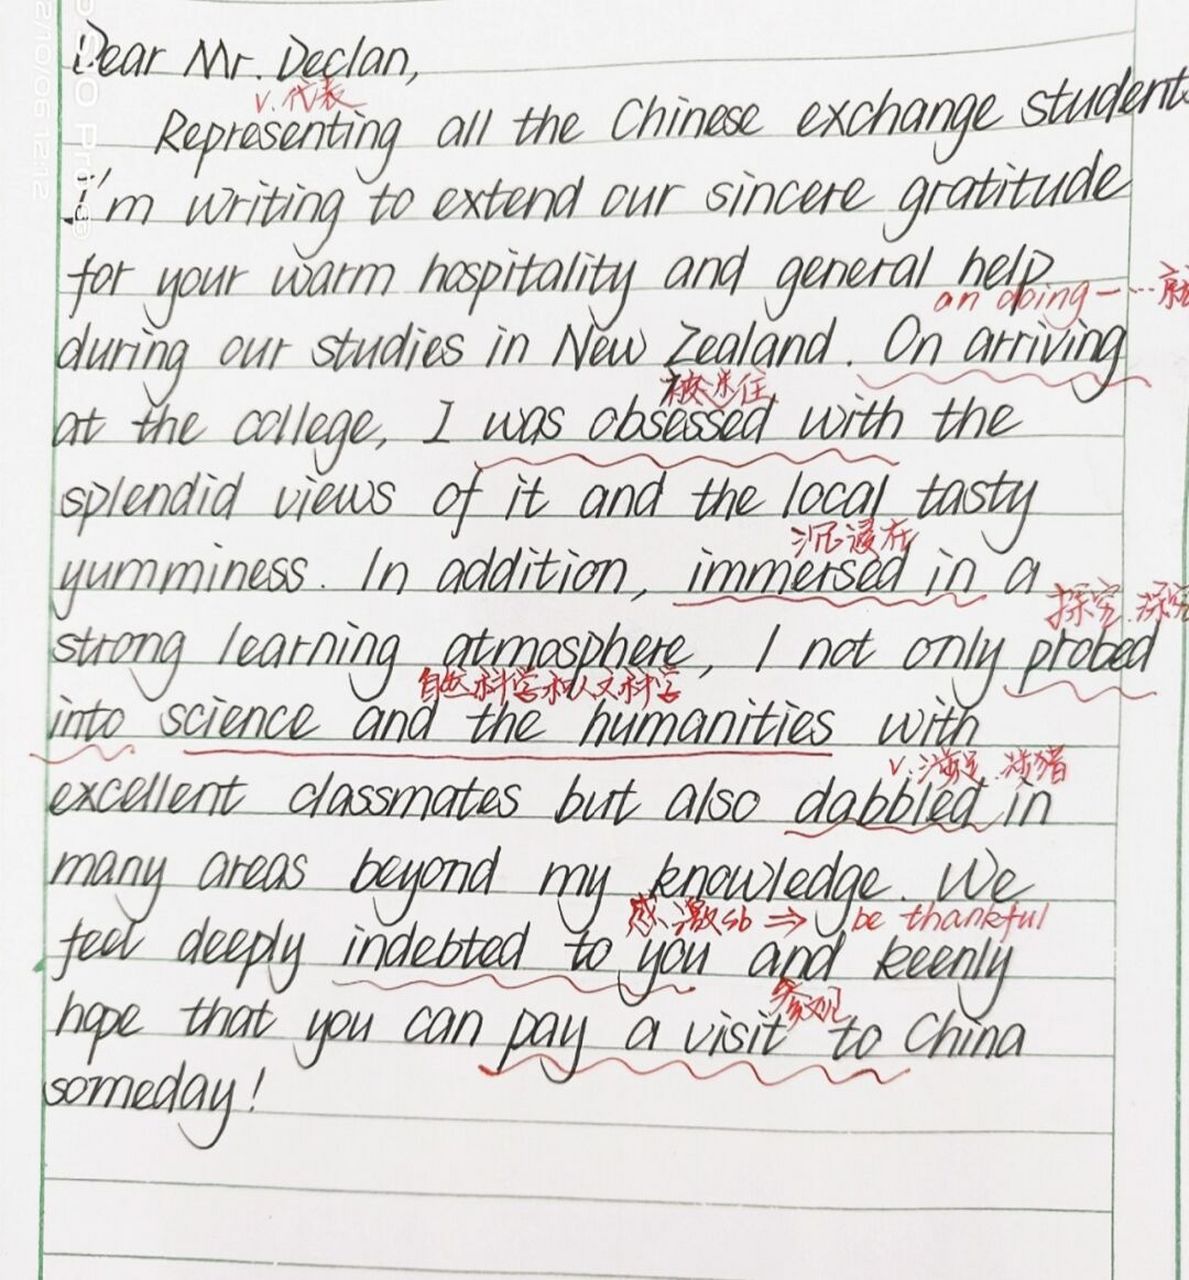 Dear Mr. Declan,
v. 代表
Representing all the Chinese exchange students
I'm writing to extend our sincere gratitude
for your warm hospitality and general help
on doing — ... 就
during our studies in New Zealand. On arriving
被迷住
at the college, I was obsessed with the
splendid views of it and the local tasty
沉浸在
yumminess. In addition, immersed in a
探究. 深究
strong learning atmosphere, I not only probed
自然科学和人文科学
into science and the humanities with
v. 涉足. 涉猎
excellent classmates but also dabbled in
many areas beyond my knowledge. We
感激sb ⇒ be thankful
feel deeply indebted to you and keenly
参观
hope that you can pay a visit to China
someday!
2/10/06 12:12